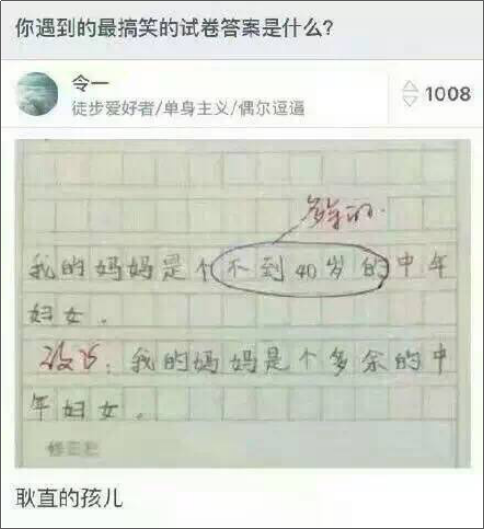 你遇到的最搞笑的试卷答案是什么?
令一
徒步爱好者/单身主义/偶尔逗逼
1008
多余的.
我的妈妈是个不到40岁的中年
妇女.
改为:我的妈妈是个多余的中
年妇女.
修正栏
耿直的孩儿